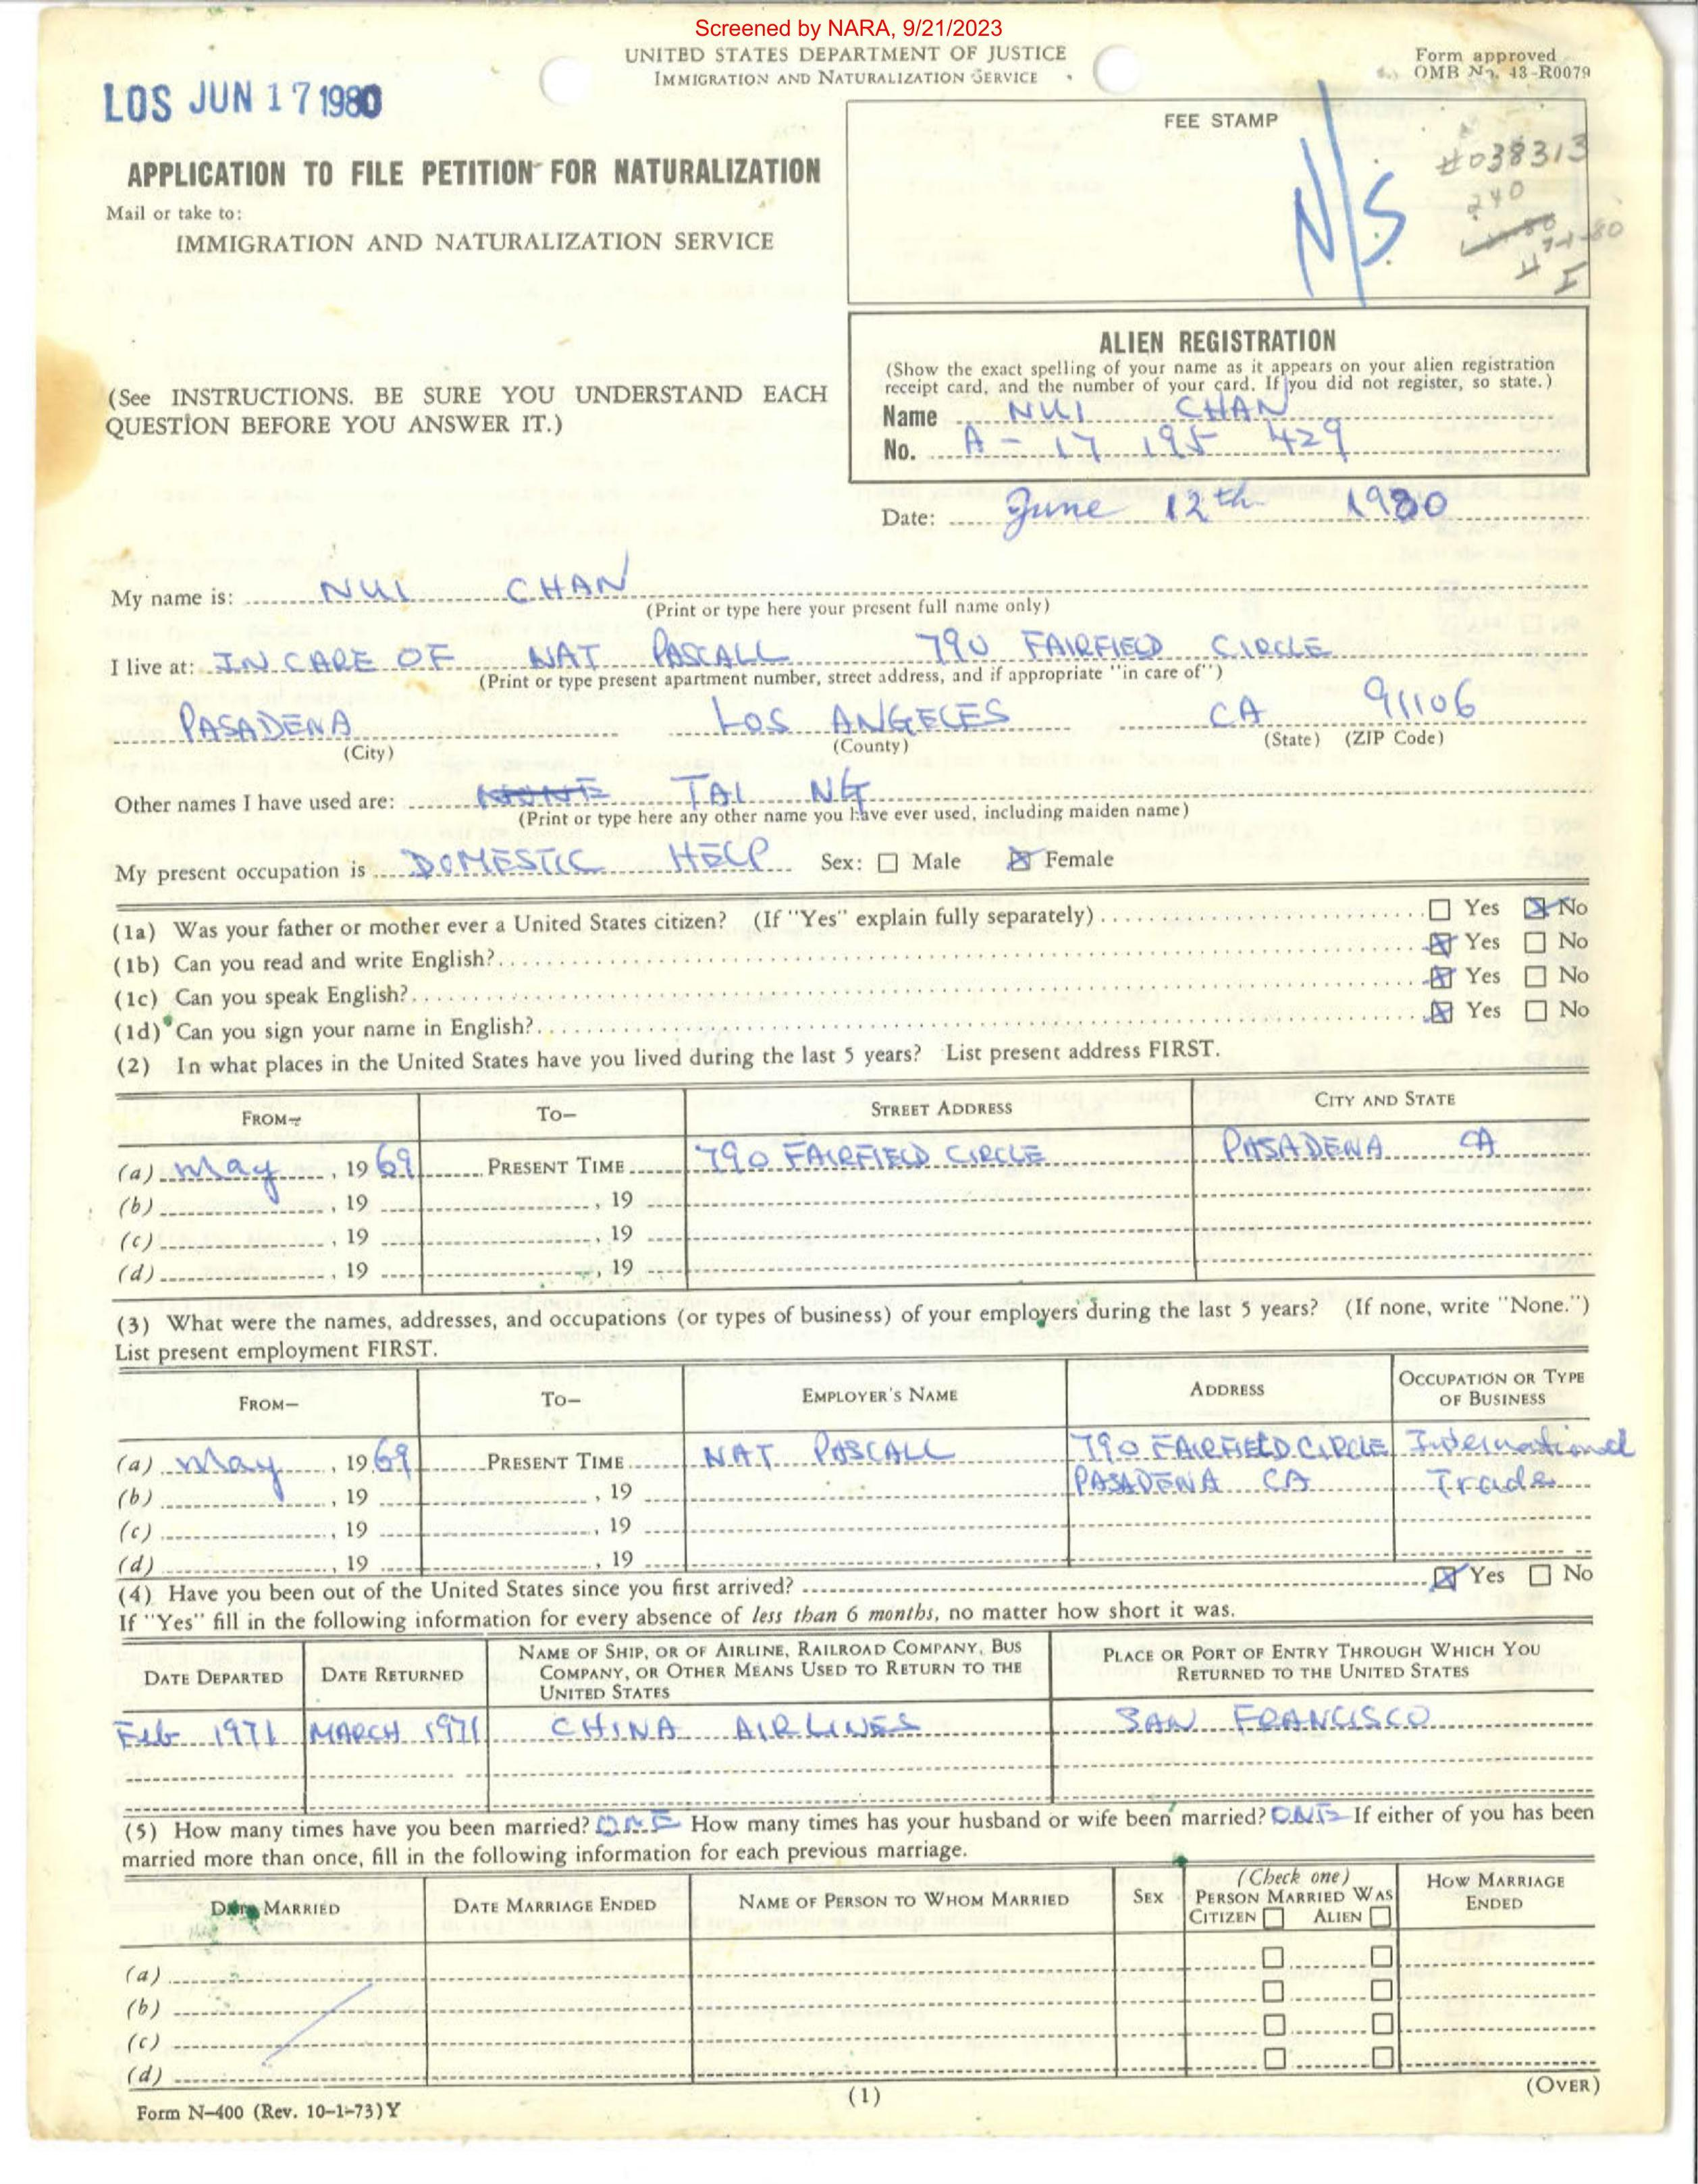 Screened by NARA, 9/21/2023
UNITED STATES DEPARTMENT OF JUSTICE
IMMIGRATION AND NATURALIZATION SERVICE
Form approved
OMB No. 43-R0079
LOS JUN 17 1980
FEE STAMP
N/S
#038313
240
APPLICATION TO FILE PETITION FOR NATURALIZATION
Mail or take to:
IMMIGRATION AND NATURALIZATION SERVICE
ALIEN REGISTRATION
(Show the exact spelling of your name as it appears on your alien registration
receipt card, and the number of your card. If you did not register, so state.)
Name NUI CHAN
No. A-17 195 429
(See INSTRUCTIONS. BE SURE YOU UNDERSTAND EACH
QUESTION BEFORE YOU ANSWER IT.)
Date: June 12th 1980
My name is: NUI CHAN
(Print or type here your present full name only)
I live at: IN CARE OF NAT PASCALL 790 FAIRFIELD CIRCLE
(Print or type present apartment number, street address, and if appropriate "in care of")
PASADENA LOS ANGELES CA 91106
(City) (County) (State) (ZIP Code)
Other names I have used are: NONE TAI NG
(Print or type here any other name you have ever used, including maiden name)
My present occupation is DOMESTIC HELP Sex: ☐ Male ☒ Female
(1a) Was your father or mother ever a United States citizen? (If "Yes" explain fully separately) ☐ Yes ☒ No
(1b) Can you read and write English? ☒ Yes ☐ No
(1c) Can you speak English? ☒ Yes ☐ No
(1d) Can you sign your name in English? ☒ Yes ☐ No
(2) In what places in the United States have you lived during the last 5 years? List present address FIRST.
FROM— TO— STREET ADDRESS CITY AND STATE
(a) May, 1969 PRESENT TIME 790 FAIRFIELD CIRCLE PASADENA CA
(b) , 19 , 19
(c) , 19 , 19
(d) , 19 , 19
(3) What were the names, addresses, and occupations (or types of business) of your employers during the last 5 years? (If none, write "None.")
List present employment FIRST.
FROM— TO— EMPLOYER'S NAME ADDRESS OCCUPATION OR TYPE OF BUSINESS
(a) May, 1969 PRESENT TIME NAT PASCALL 790 FAIRFIELD CIRCLE International
(b) , 19 , 19 PASADENA CA Trade
(c) , 19 , 19
(d) , 19 , 19
(4) Have you been out of the United States since you first arrived? ☒ Yes ☐ No
If "Yes" fill in the following information for every absence of less than 6 months, no matter how short it was.
DATE DEPARTED DATE RETURNED NAME OF SHIP, OR OF AIRLINE, RAILROAD COMPANY, BUS COMPANY, OR OTHER MEANS USED TO RETURN TO THE UNITED STATES PLACE OR PORT OF ENTRY THROUGH WHICH YOU RETURNED TO THE UNITED STATES
Feb 1971 MARCH 1971 CHINA AIRLINES SAN FRANCISCO
(5) How many times have you been married? ONE How many times has your husband or wife been married? ONE If either of you has been
married more than once, fill in the following information for each previous marriage.
DATE MARRIED DATE MARRIAGE ENDED NAME OF PERSON TO WHOM MARRIED SEX (Check one) PERSON MARRIED WAS CITIZEN ☐ ALIEN ☐ HOW MARRIAGE ENDED
(a) ☐ ☐
(b) ☐ ☐
(c) ☐ ☐
(d) ☐ ☐
(1)
(OVER)
Form N-400 (Rev. 10-1-73)Y